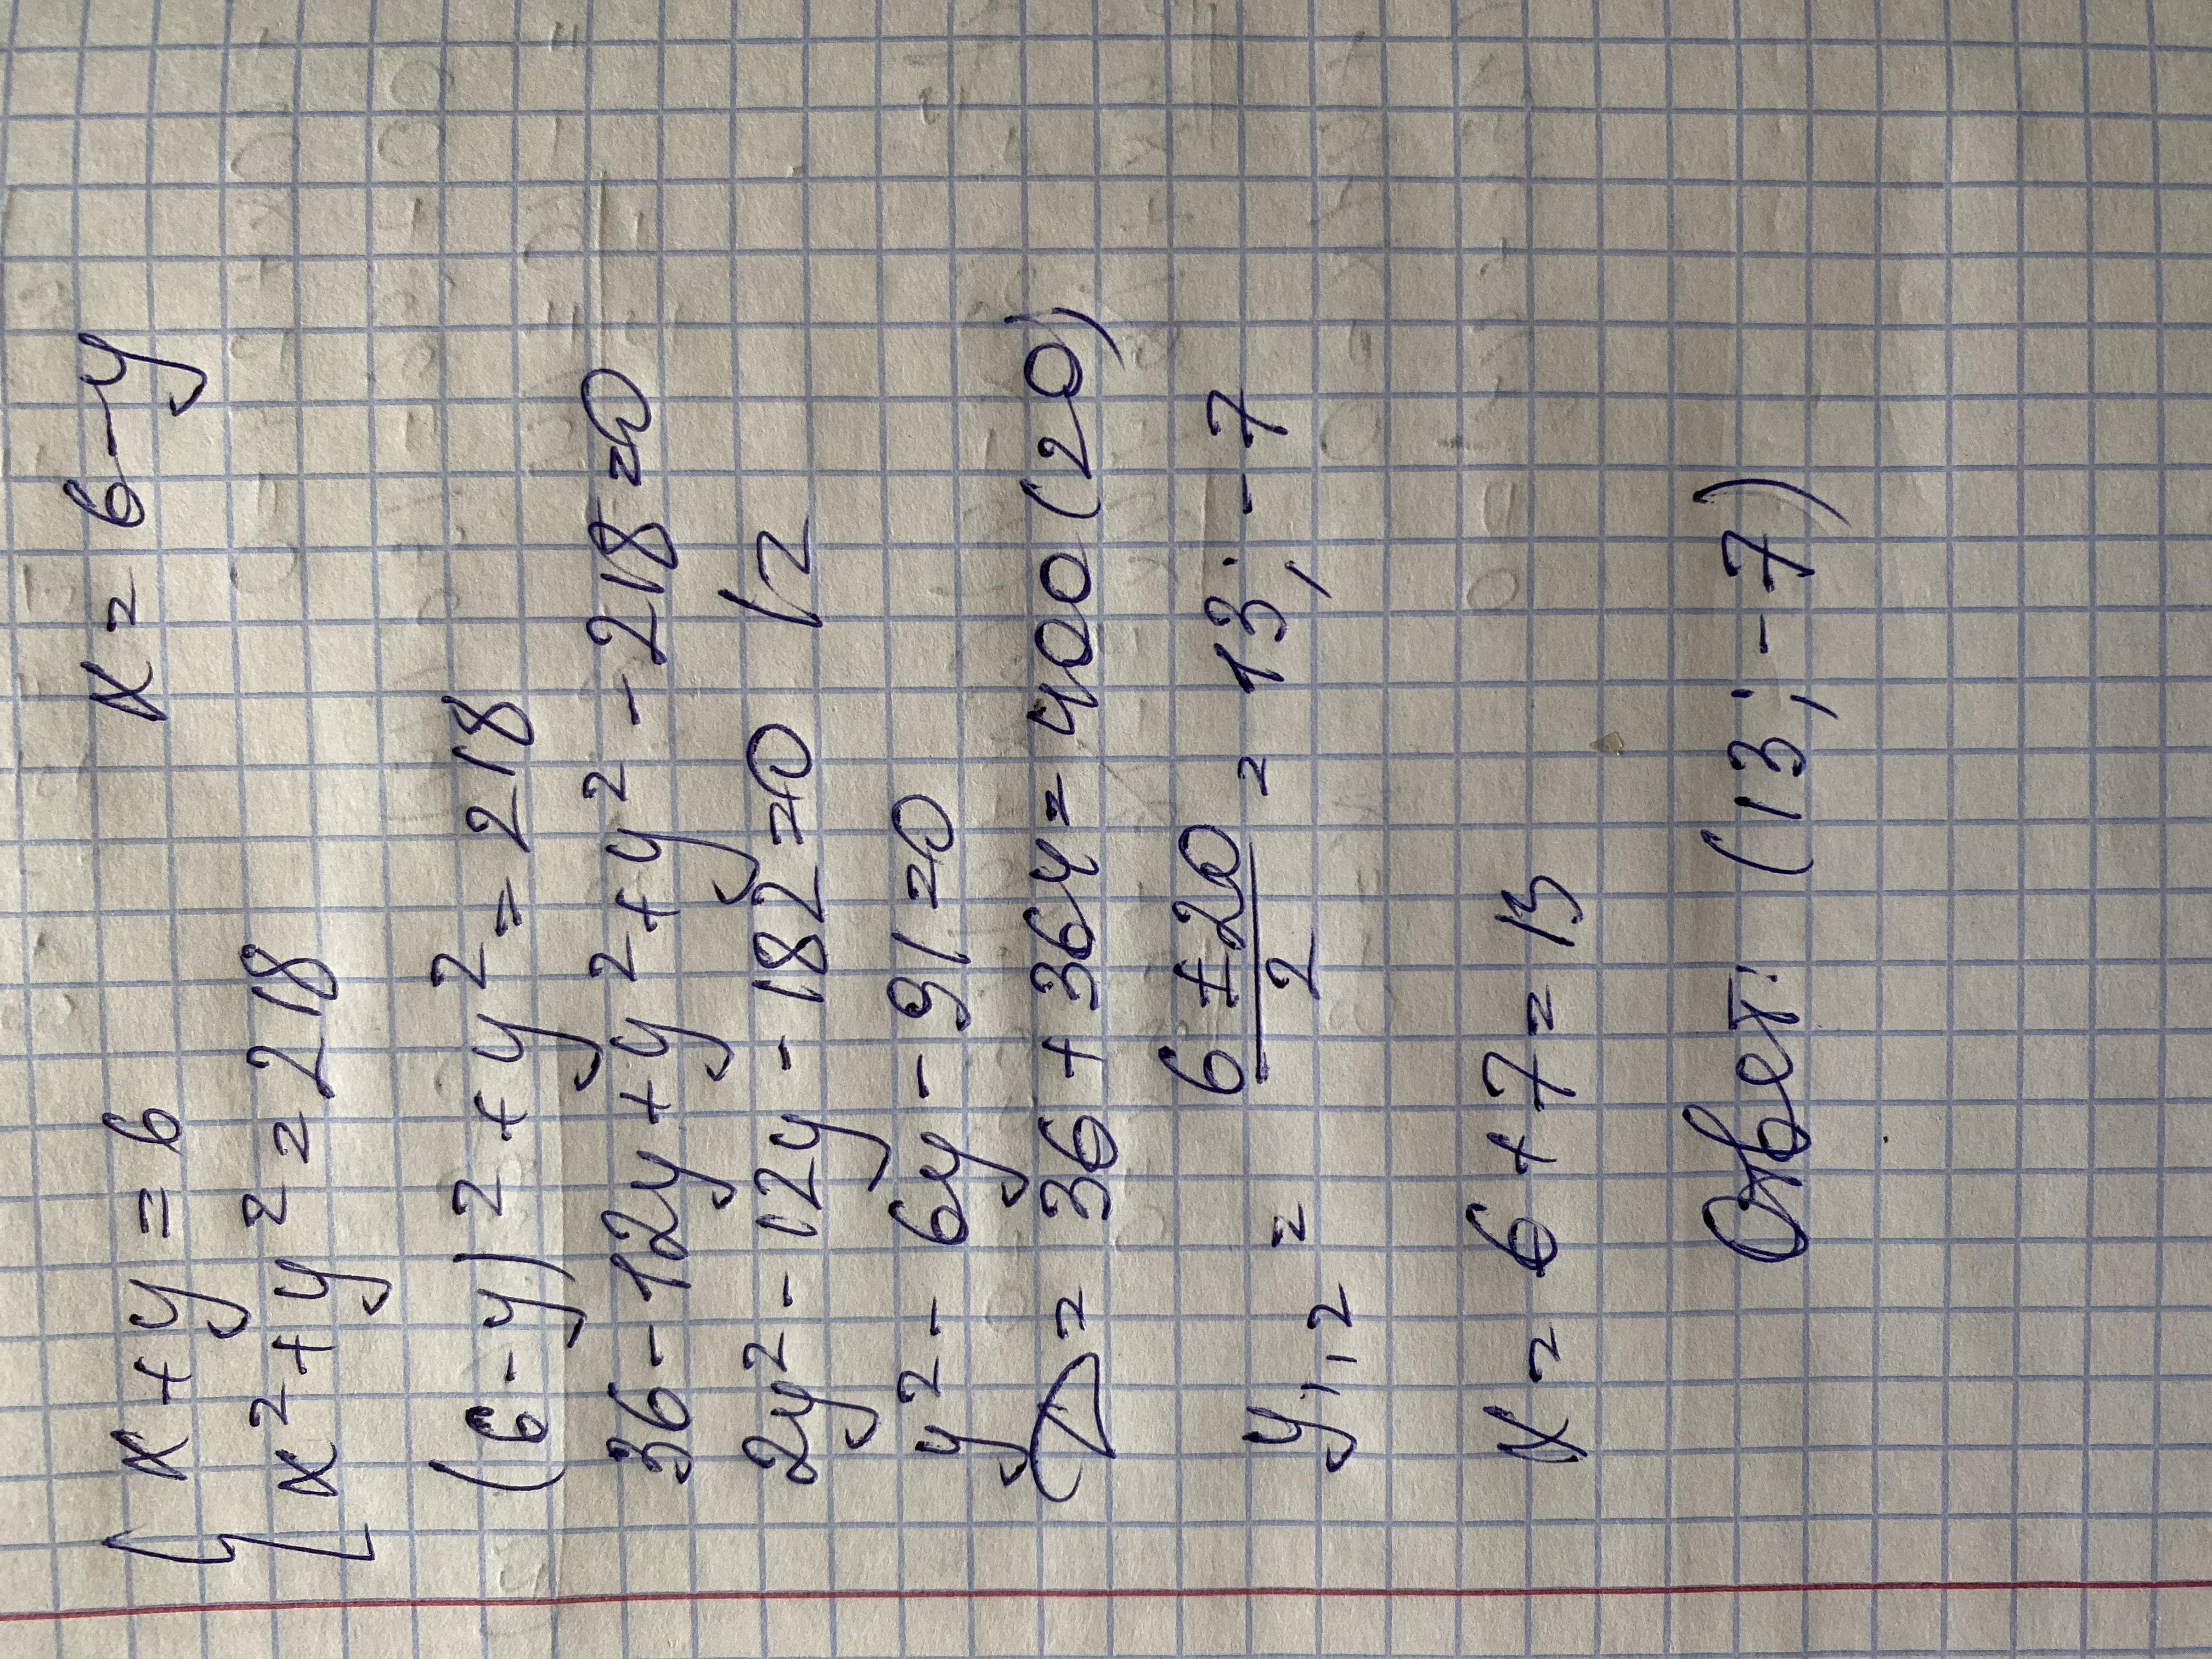 { x + y = 6    x = 6 - y
x² + y² = 218
(6 - y)² + y² = 218
36 - 12y + y² + y² - 218 = 0
2y² - 12y - 182 = 0  | 2
y² - 6y - 91 = 0
D = 36 + 364 = 400 (20)
y₁,₂ = (6 ± 20)/2 = 13; -7
x = 6 + 7 = 13
Ответ: (13; -7)